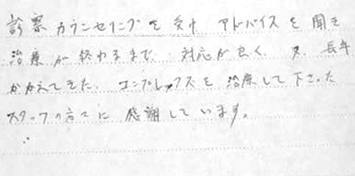 診察カウンセリングを受け アドバイスを聞き
治療が終わるまで 対応が良く、又、長年
かかえてきた コンプレックスを治療して下さった
スタッフの方々に 感謝しています。